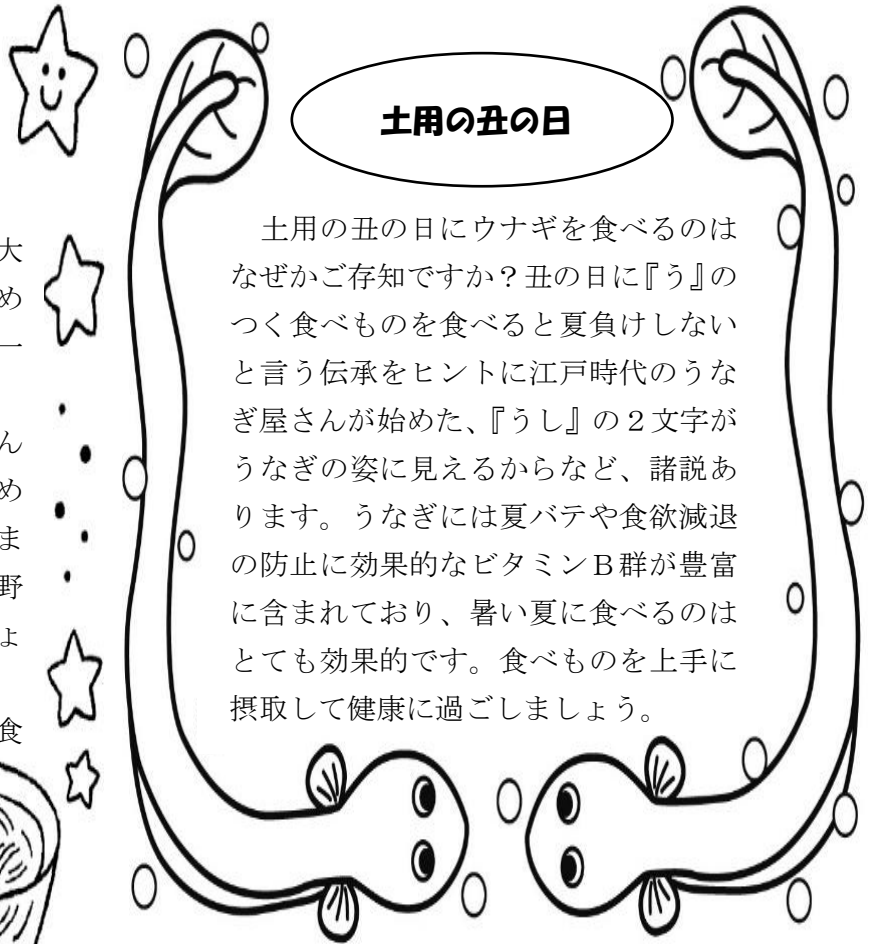 土用の丑の日
　土用の丑の日にウナギを食べるのは
なぜかご存知ですか？丑の日に『う』の
つく食べものを食べると夏負けしない
と言う伝承をヒントに江戸時代のうな
ぎ屋さんが始めた、『うし』の２文字が
うなぎの姿に見えるからなど、諸説あ
ります。うなぎには夏バテや食欲減退
の防止に効果的なビタミンＢ群が豊富
に含まれており、暑い夏に食べるのは
とても効果的です。食べものを上手に
摂取して健康に過ごしましょう。
大
め
一
ん
め
ま
野
ょ
食